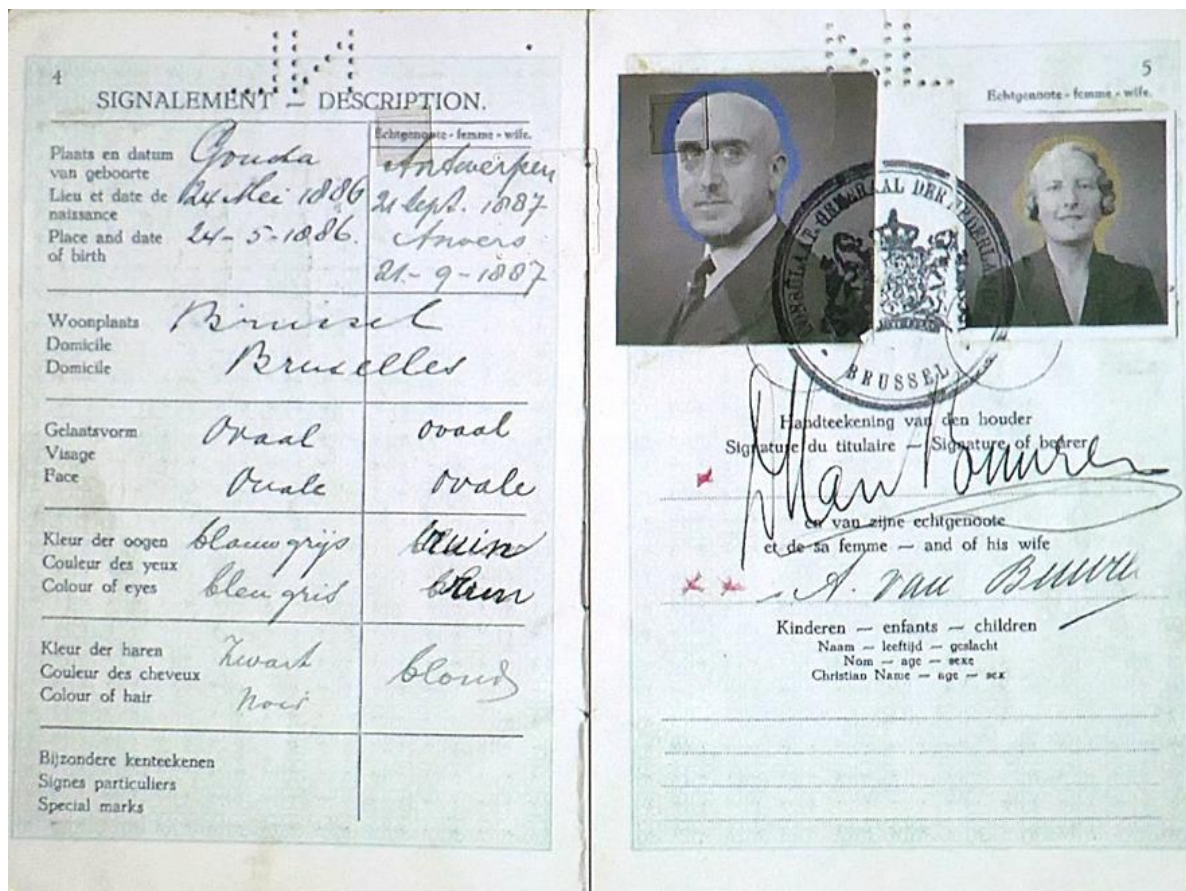 4
SIGNALEMENT — DESCRIPTION.
Echtgenoote - femme - wife.
Plaats en datum van geboorte
Lieu et date de naissance
Place and date of birth
Gouda
24 Mei 1886
24-5-1886.
Antwerpen
21 Sept. 1887
Anvers
21-9-1887
Woonplaats
Domicile
Domicile
Brussel
Bruxelles
Gelaatsvorm
Visage
Face
Ovaal
Ovale
ovaal
ovale
Kleur der oogen
Couleur des yeux
Colour of eyes
blauwgrijs
bleu gris
bruin
brun
Kleur der haren
Couleur des cheveux
Colour of hair
Zwart
Noir
blond
Bijzondere kenteekenen
Signes particuliers
Special marks
5
Echtgenoote - femme - wife.
CONSULAAT-GENERAAL DER NEDERLANDEN
BRUSSEL
Handteekening van den houder
Signature du titulaire — Signature of bearer
en van zijne echtgenoote
et de sa femme — and of his wife
A. van
Kinderen — enfants — children
Naam — leeftijd — geslacht
Nom — age — sexe
Christian Name — age — sex